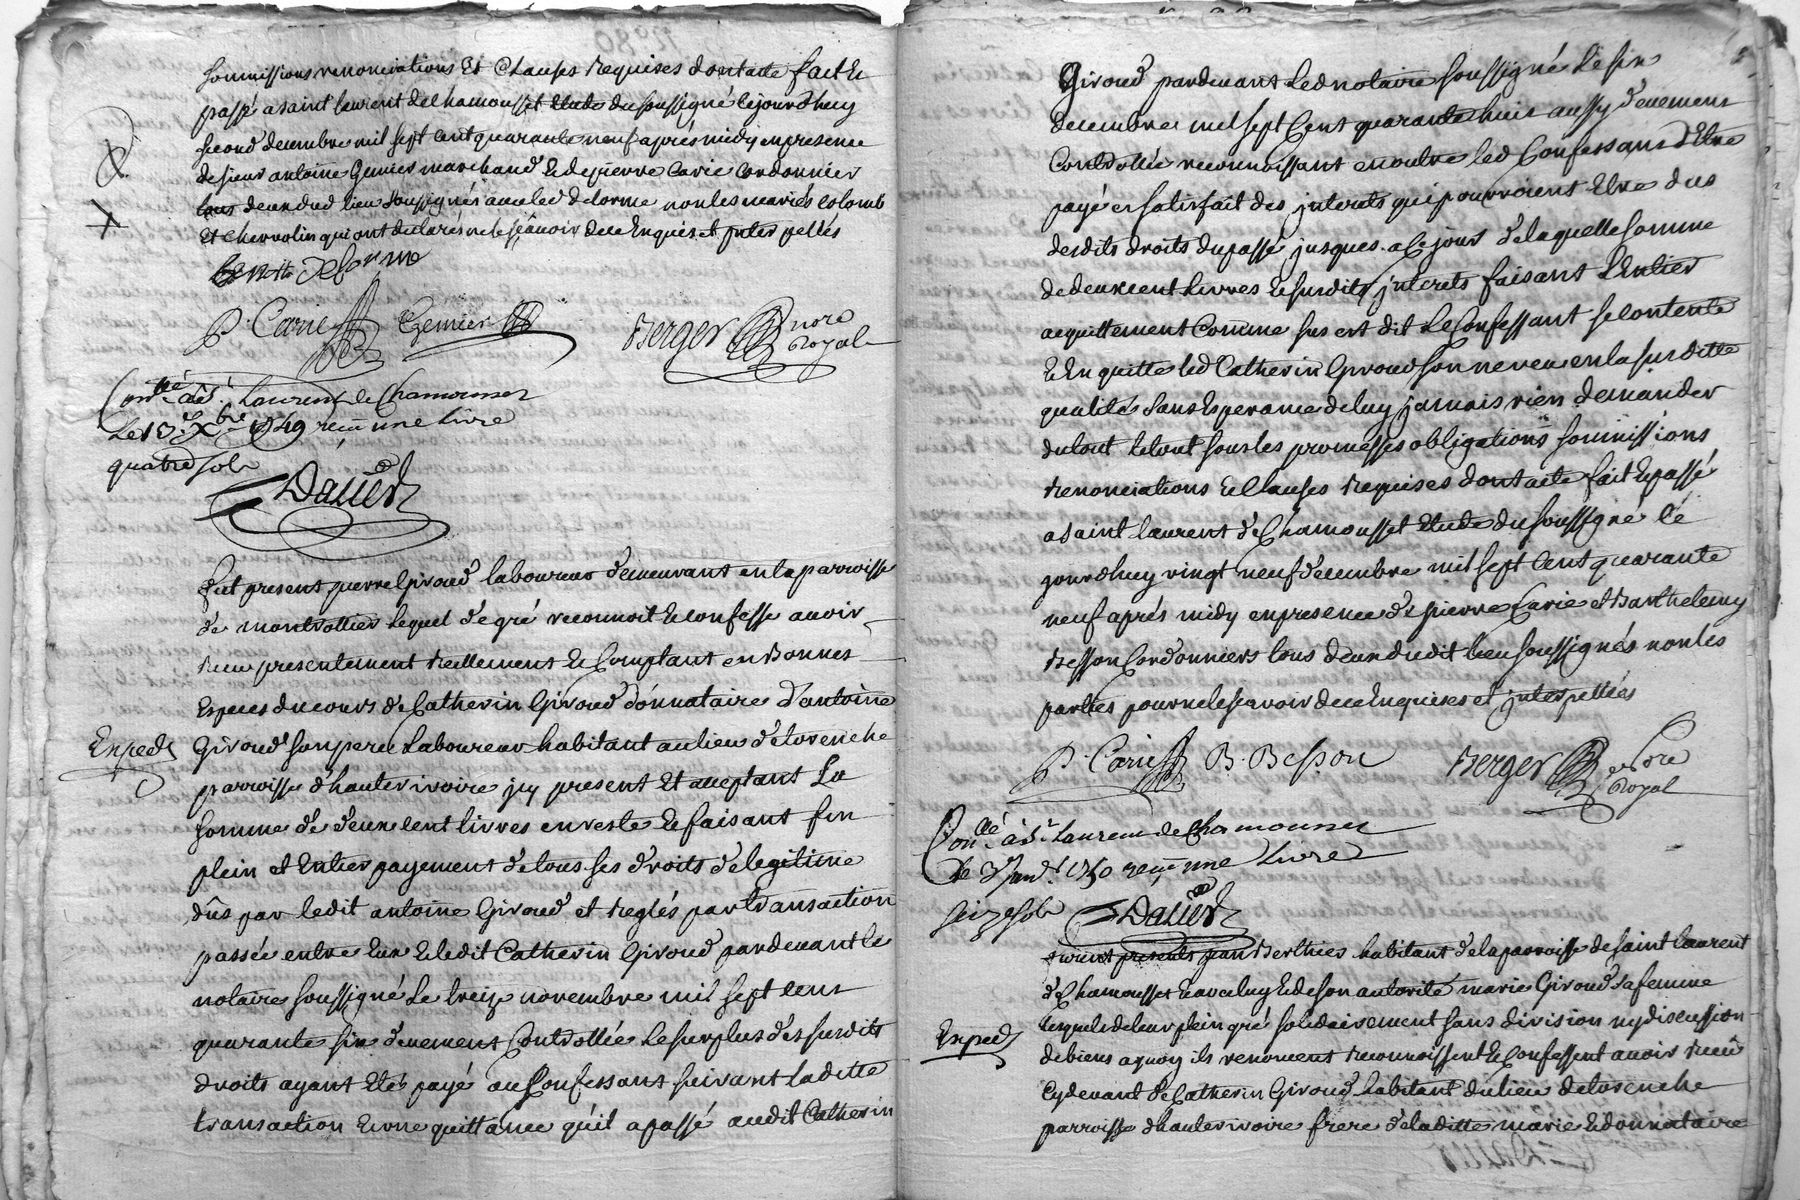 sommissions renonciations Et Clauses Requises dont acte fait Et
passé a saint laurent de chamousset Etude du soussigné cejourdhuy
second decembre mil sept cent quarante neuf aprés midy en presence
de sieur antoine Gemier marchand Et de pierre Carie cordonnier
tous deux dud lieu soussignés avec led delorme non les mariés colomb
Et Chervolin qui ont declarés ne le sçavoir de ce Enquis et interpellés
Benoitt delorme
P. Carie Gemier Berger nore Royal
Conllé a St Laurent de Chamousset
Le 13e Xbre 1749 reçu une Livre
quatre sols
Dauer
fut present pierre Giroud laboureur demeurant en la parroisse
de montrottier lequel de gré reconnoit Et confesse avoir
receu presentement reellement Et Comptant en Bonnes
Especes du cours de Catherin Giroud donnataire d'antoine
Exped Giroud son pere Laboureur habitant au lieu de
parroisse d'hauterivoire icy present Et acceptant La
somme de deux cent livres en reste Et faisant fin
plein et Entier payement de tous ses droits de legitime
dûs par ledit antoine Giroud et Reglés par transaction
passée entre Eux Et ledit Catherin Giroud pardevant le
notaire soussigné Le treize novembre mil sept cent
quarante six deuement Controllée Le surplus des susdits
droits ayant Eté payé au Confessant suivant laditte
transaction Et une quittance qu'il a passé audit Catherin
Giroud pardevant Led notaire soussigné Le six
decembre mil sept Cent quarante huit aussy deuement
Controllée reconnoissant en outre led Confessant d'Etre
payé et satisfait des interets qui pourroient Etre dus
desdits droits du passé jusques a ce jour de laquelle somme
de deux cent livres Et susdits interets faisant L'Entier
acquittement Comme sus est dit Le Confessant se contente
Et En quitte led Catherin Giroud son neveu en la susditte
qualité sans Esperance de luy jamais rien demander
du tout Le tout sous les promesses obligations sommissions
Renonciations Et Clauses Requises dont acte fait Et passé
a saint laurent de Chamousset Etude du soussigné Ce
jourdhuy vingt neuf decembre mil sept Cent quarante
neuf aprés midy en presence de pierre Carie et Barthelemy
Besson Cordonniers tous deux dudit lieu soussignés non les
parties pour ne le sçavoir de ce Enquises et interpellées
P. Carie B. Besson Berger nore Royal
Conllé a St Laurent de Chamousset
Le 3 Janr 1750 reçu une Livre
seize sols Dauer
furent presents jean Berthier habitant de la parroisse de saint laurent
de Chamousset Et avec luy Et de son autorité marie Giroud sa femme
lesquels de leur plein gré solidairement sans division ny discussion
Exped de biens a quoy ils renoncent reconnoissent Et Confessent avoir receu
cy devant de Catherin Giroud habitant du lieu de
parroisse d'hauterivoire frere de laditte marie Et donnataire